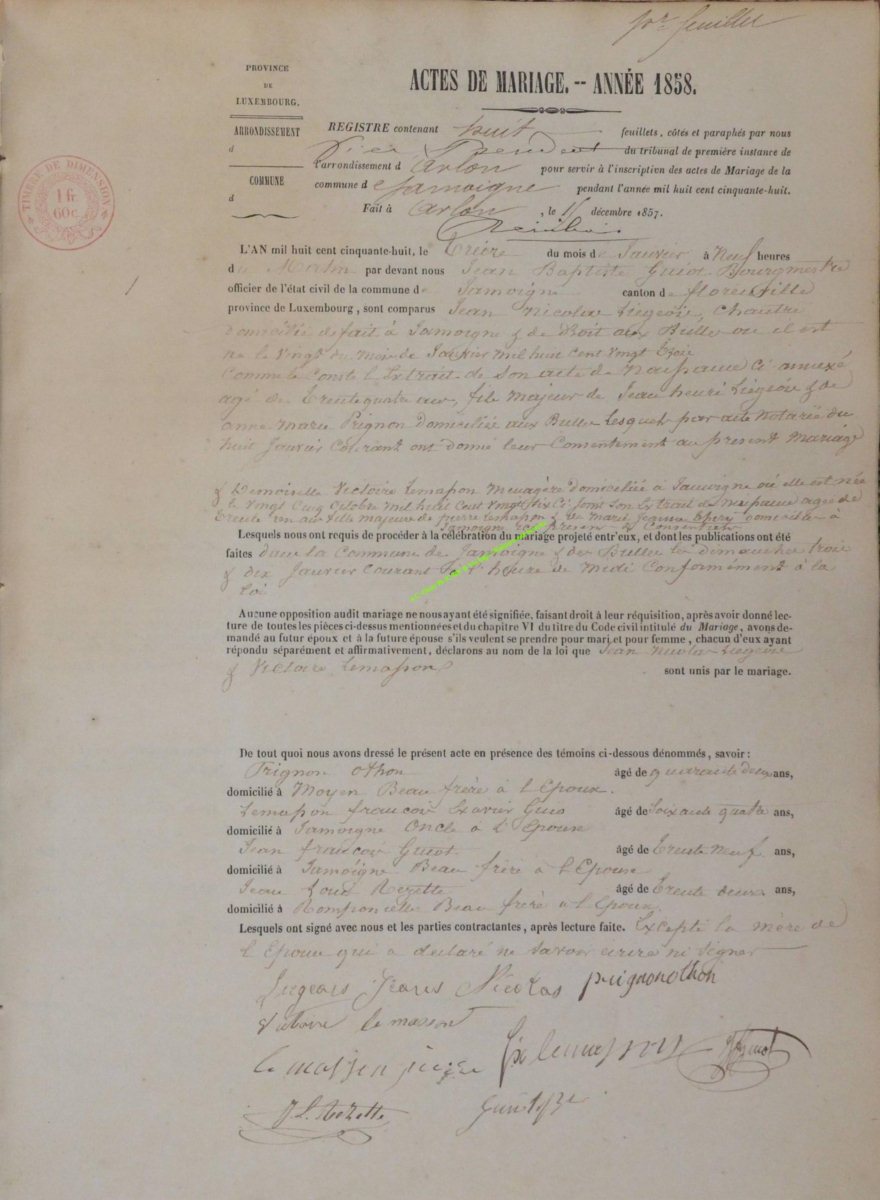 pr feuillet
PROVINCE
DE
LUXEMBOURG.
ARRONDISSEMENT
d
COMMUNE
d
TIMBRE DE DIMENSION
1 fr
60 c.
ACTES DE MARIAGE. -- ANNÉE 1858.
REGISTRE contenant huit feuillets, côtés et paraphés par nous
Vice President du tribunal de première instance de
l'arrondissement d Arlon pour servir à l'inscription des actes de Mariage de la
commune de Jamoigne pendant l'année mil huit cent cinquante-huit.
Fait à Arlon, le 15 décembre 1857.
L'AN mil huit cent cinquante-huit, le treize du mois de Janvier à neuf heures
du Matin par devant nous Jean Baptiste Guiot Bourgmestre
officier de l'état civil de la commune de Jamoigne canton de florenville
province de Luxembourg, sont comparus Jean Nicolas Liégeois, Chantre
domicilié de fait à Jamoigne & de Droit aux Bulles ou il est
né le vingt du mois de Janvier mil huit cent vingt trois
Comme le Conste l'Extrait de Son acte de Naissance Ci annexé
agé de trente quatre ans, fils majeur de Jean henri Liégeois & de
anne marie Prignon domiciliés aux Bulles lesquels par acte notarié du
huit Janvier Courant ont donné leur Consentement au present Mariage
& Demoiselle Victoire Lemasson Menagère domiciliée à Jamoigne où elle est née
le vingt Cinq octobre mil huit Cent vingt Six Ci joint Son Extrait de naissance agée de
trente un ans fille majeure de pierre Lemasson & de Marie Jeanne domiciliés à
Jamoigne ici present & Consentant
Lesquels nous ont requis de procéder à la célébration du mariage projeté entr'eux, et dont les publications ont été
faites dans la Commune de Jamoigne & des Bulles les dimanches trois
& dix Janvier Courant à l'heure de Midi Conformément à la
loi
Aucune opposition audit mariage ne nous ayant été signifiée, faisant droit à leur réquisition, après avoir donné lec-
ture de toutes les pièces ci-dessus mentionnées et du chapitre VI du titre du Code civil intitulé du Mariage, avons de-
mandé au futur époux et à la future épouse s'ils veulent se prendre pour mari et pour femme, chacun d'eux ayant
répondu séparément et affirmativement, déclarons au nom de la loi que Jean Nicolas Liegeois
& Victoire Lemasson sont unis par le mariage.
De tout quoi nous avons dressé le présent acte en présence des témoins ci-dessous dénommés, savoir:
Prignon othon âgé de quarante deux ans,
domicilié à Moyen Beau frère à l'Epoux.
Lemasson françois Xavier âgé de Soixante quatre ans,
domicilié à Jamoigne Oncle à l'Epouse
Jean françois Guiot âgé de trente neuf ans,
domicilié à Jamoigne Beau frère à l'Epouse
Jean Louis Rezette âgé de trente deux ans,
domicilié à Romponcelle Beau frère à l'Epoux.
Lesquels ont signé avec nous et les parties contractantes, après lecture faite. Excepté la mère de
l'Epouse qui a declaré ne Savoir écrire ni Signer
Liegeois Jean Nicolas prignon othon
victoire le masson
le masson pierre fx lemasson JfGuiot
J L Rezette